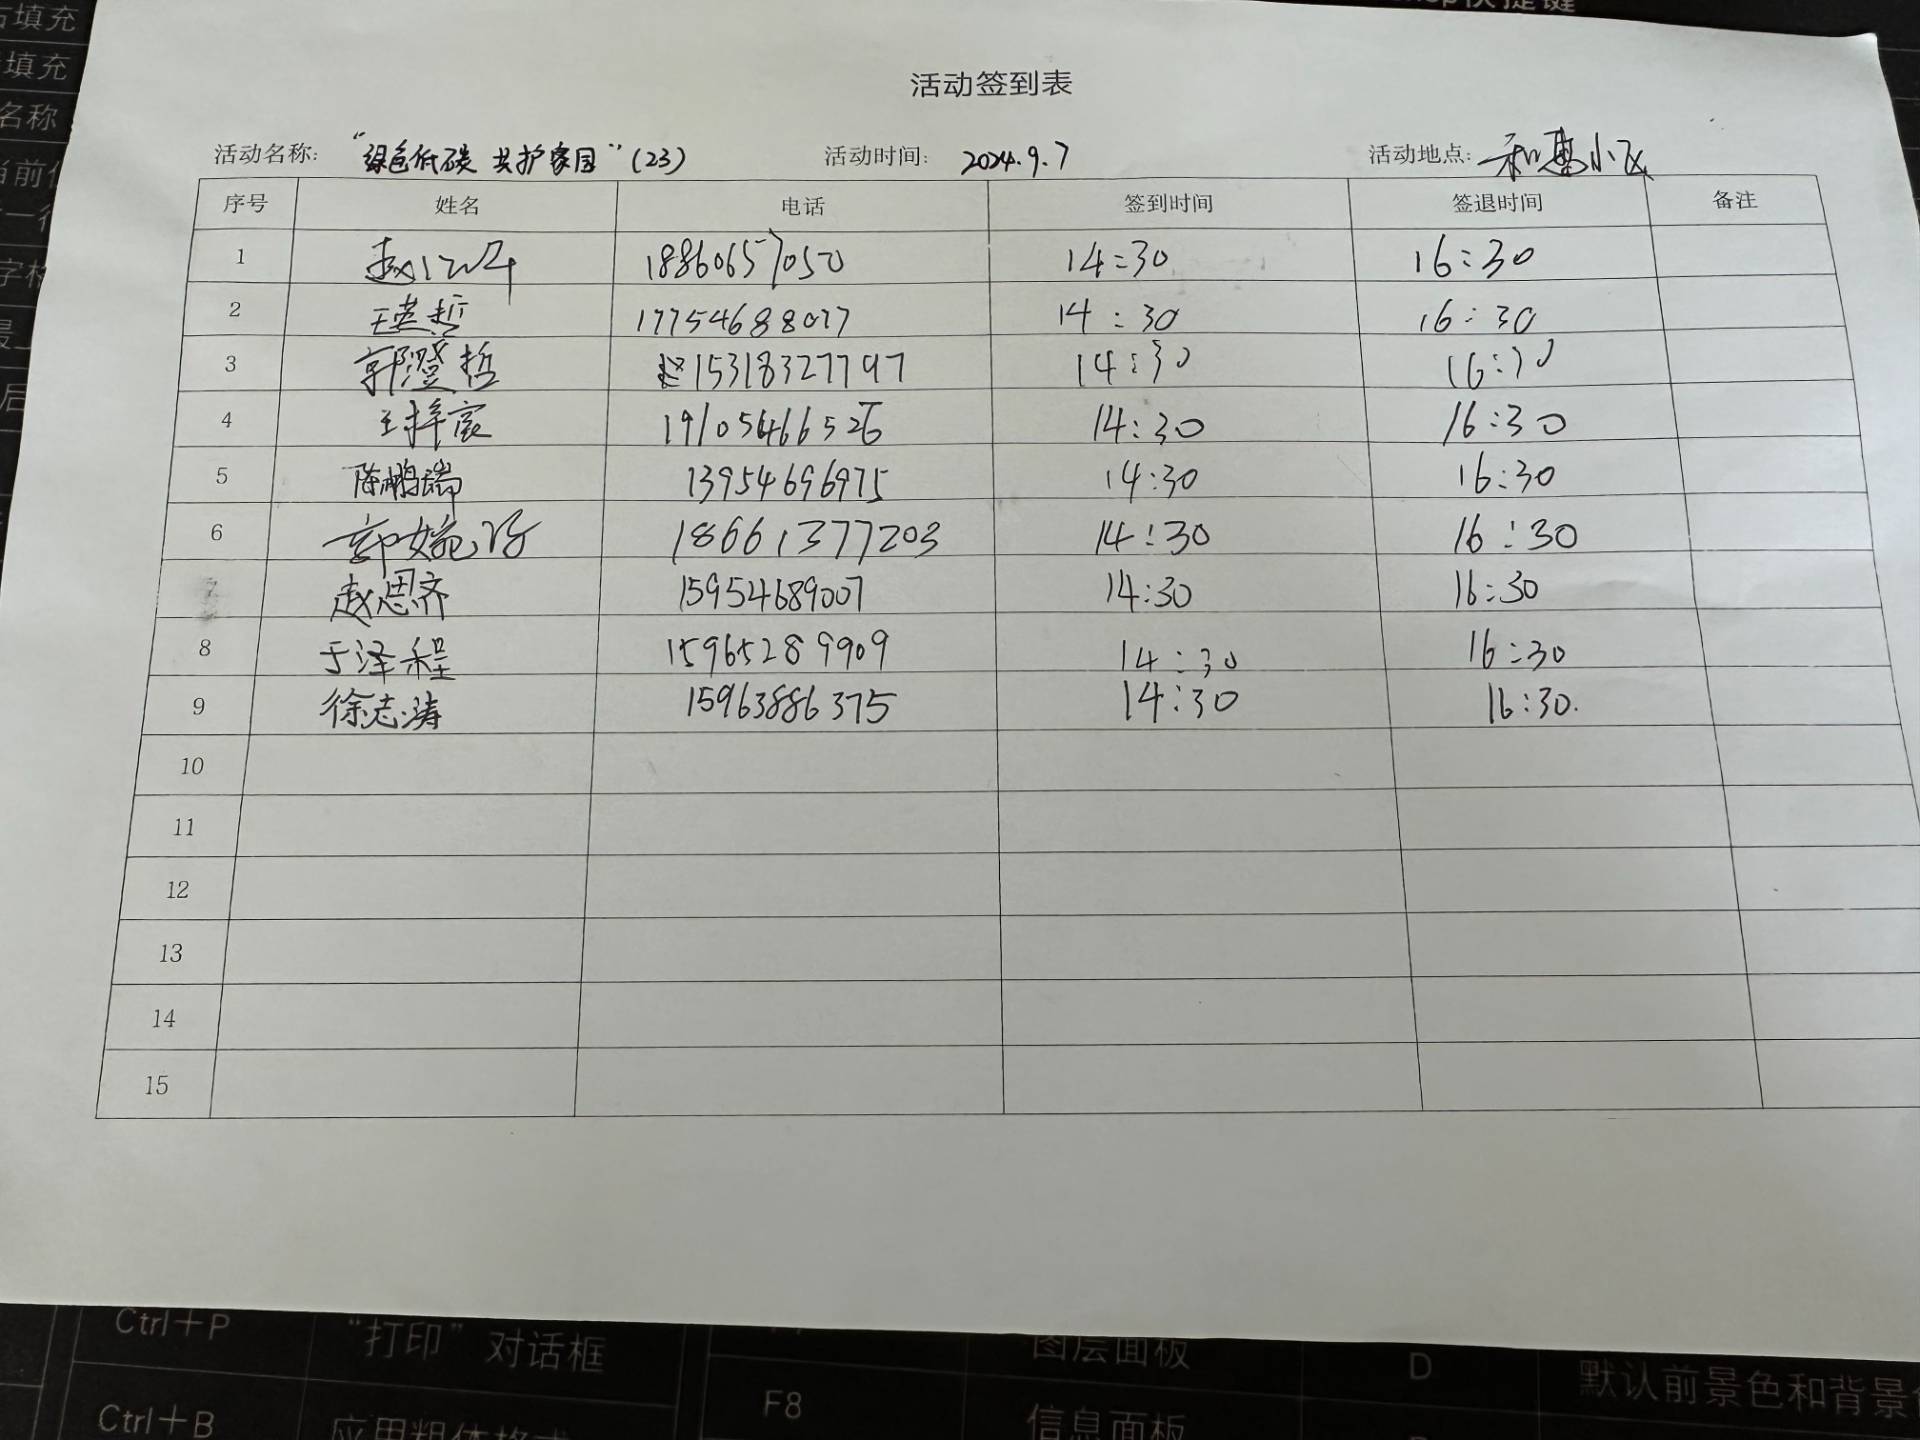 右填充
填充
名称
活动签到表
活动名称: “绿色低碳 共护家园”(23) 活动时间: 2024.9.7 活动地点: 和惠小区
序号 姓名 电话 签到时间 签退时间 备注
1 18860657050 14:30 16:30
2 王英哲 17754688077 14:30 16:30
3 郭澄哲 15318327797 14:30 16:30
4 王梓宸 19105466526 14:30 16:30
5 陈鹏瑞 13954696975 14:30 16:30
6 郭婉 18661377203 14:30 16:30
7 赵思齐 15954689007 14:30 16:30
8 于泽程 15965289909 14:30 16:30
9 徐志涛 15963886375 14:30 16:30.
10
11
12
13
14
15
Ctrl+P “打印”对话框 图层面板 D 默认前景色和背景
Ctrl+B F8 信息面板